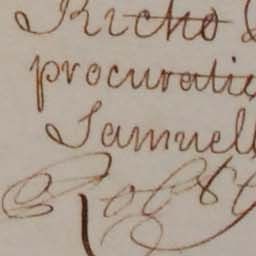 Richo
procuratie
Samuell
Robt